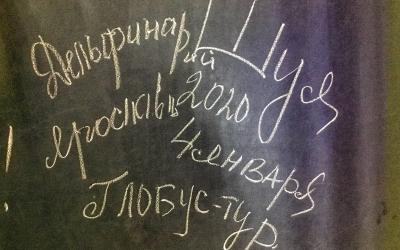 Дельфинарий Шуя
2020
4 января
Глобус-тур